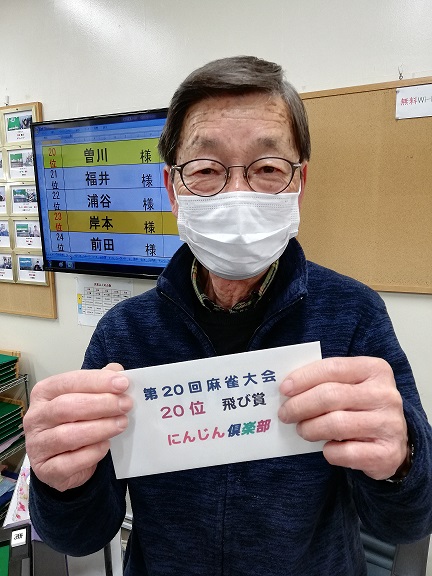 20位 曽川 様
21位 福井 様
22位 浦谷 様
23位 岸本 様
24位 前田 様
無料Wi-
第20回麻雀大会
20位 飛び賞
にんじん倶楽部